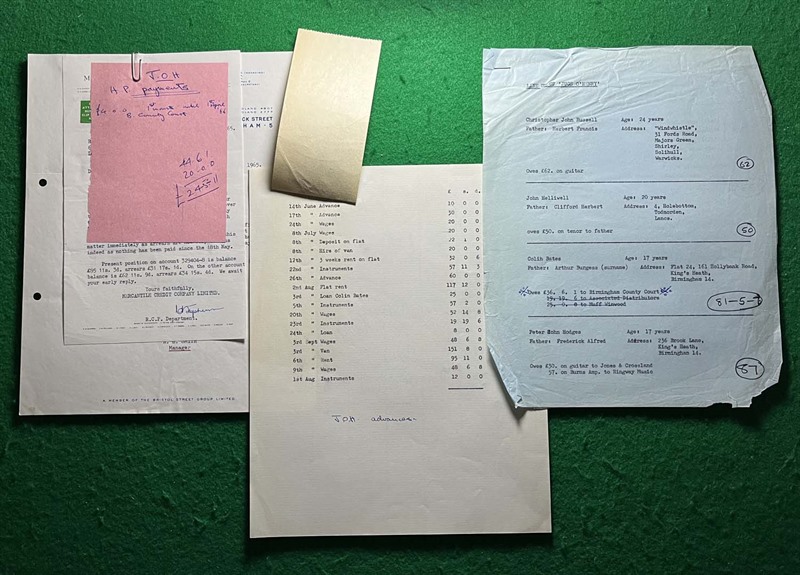 J.O.H
H P payments
B. County Court
1461
20.0.0
STREET
HAM - 5
1965.
matter immediately as arrears
indeed as nothing has been paid since the 18th May.
Present position on account 329404-B is balance
£95 11s. 3d. arrears £31 17s. 1d. On the other account
balance is £62 11s. 9d. arrears £34 15s. 4d. We await
your early reply.
Yours faithfully,
MERCANTILE CREDIT COMPANY LIMITED.
H.C.F. Department.
Manager
A MEMBER OF THE BRISTOL STREET GROUP LIMITED
£ s. d.
14th June Advance 10 0 0
17th " Advance 50 0 0
24th " Wages 20 0 0
8th July Wages 20 0 0
8th " Deposit on flat
8th " Hire of van 20 0 0
12th " 3 weeks rent on flat 32 0 6
22nd " Instruments 57 11 3
26th " Advance 60 0 0
2nd Aug Flat rent 117 12 0
3rd " Loan Colin Bates 25 0 0
5th " Instruments 37 2 0
20th " Wages 32 14 8
23rd " Instruments 19 19 6
24th " Loan 8 0 0
3rd Sept Wages 48 6 8
3rd " Van 151 8 0
6th " Rent 95 11 0
9th " Wages 48 6 8
1st Aug Instruments 12 0 0
J.O.H. advances-
Christopher John Russell Age: 24 years
Father: Herbert Francis Address: "Windwhistle",
31 Fords Road,
Majors Green,
Shirley,
Solihull,
Warwicks.
Owes £62. on guitar
62
John Helliwell Age: 20 years
Father: Clifford Herbert Address: 4, Holebottom,
Todmorden,
Lancs.
owes £50. on tenor to father
50
Colin Bates Age: 17 years
Father: Arthur Burgess (surname) Address: Flat 24, 161 Hollybank Road,
King's Heath,
Birmingham 14.
Owes £36. 6. 1 to Birmingham County Court
19. 19. 6 to Associated Distributors
25. 0. 8 to Muff Winwood
81-5-7
Peter John Hodges Age: 17 years
Father: Frederick Alfred Address: 236 Brook Lane,
King's Heath,
Birmingham 14.
Owes £30. on guitar to Jones & Crossland
57. on Burns Amp. to Ringway Music
87